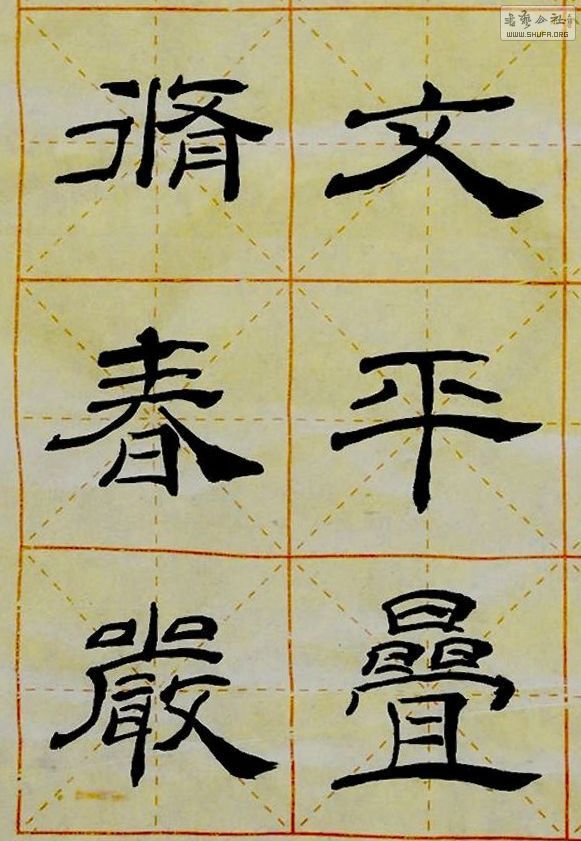 文平曡
脩春嚴
书艺公社
WWW.SHUFA.ORG